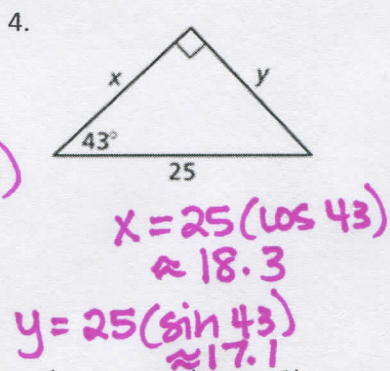 4.
x
y
43°
25
x = 25(cos 43)
≈ 18.3
y = 25(sin 43)
≈ 17.1